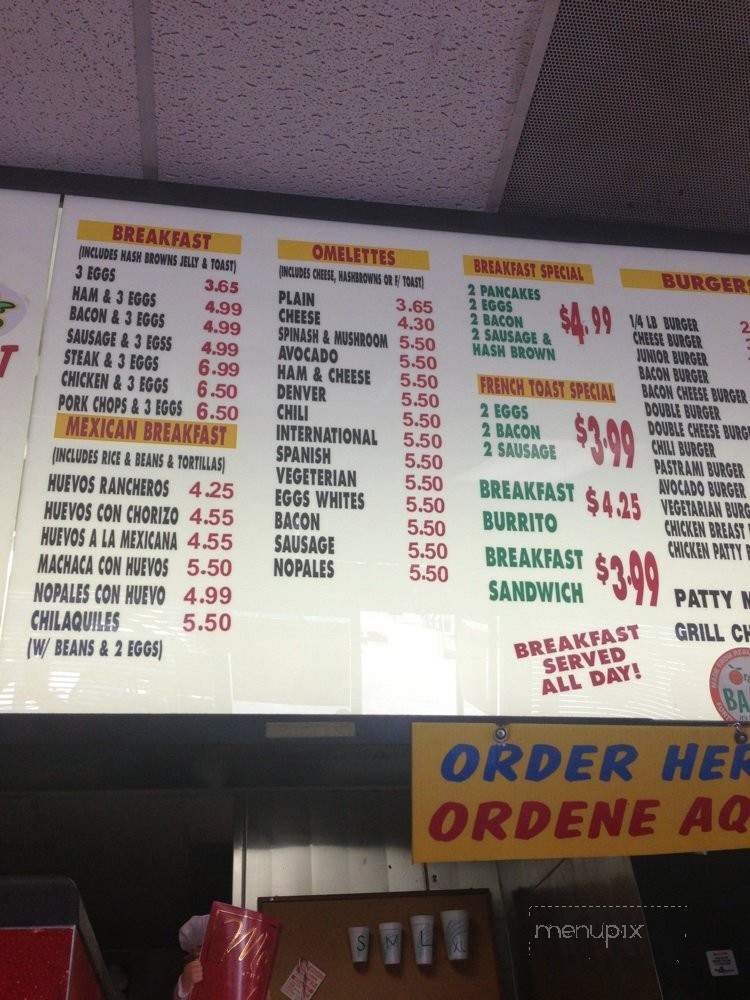 BREAKFAST
(INCLUDES HASH BROWNS JELLY & TOAST)
3 EGGS 3.65
HAM & 3 EGGS 4.99
BACON & 3 EGGS 4.99
SAUSAGE & 3 EGSS 4.99
STEAK & 3 EGGS 6.99
CHICKEN & 3 EGGS 6.50
PORK CHOPS & 3 EGGS 6.50
MEXICAN BREAKFAST
(INCLUDES RICE & BEANS & TORTILLAS)
HUEVOS RANCHEROS 4.25
HUEVOS CON CHORIZO 4.55
HUEVOS A LA MEXICANA 4.55
MACHACA CON HUEVOS 5.50
NOPALES CON HUEVO 4.99
CHILAQUILES 5.50
(W/ BEANS & 2 EGGS)
OMELETTES
(INCLUDES CHEESE, HASHBROWNS OR F/ TOAST)
PLAIN 3.65
CHEESE 4.30
SPINASH & MUSHROOM 5.50
AVOCADO 5.50
HAM & CHEESE 5.50
DENVER 5.50
CHILI 5.50
INTERNATIONAL 5.50
SPANISH 5.50
VEGETERIAN 5.50
EGGS WHITES 5.50
BACON 5.50
SAUSAGE 5.50
NOPALES 5.50
BREAKFAST SPECIAL
2 PANCAKES
2 EGGS
2 BACON $4.99
2 SAUSAGE &
HASH BROWN
FRENCH TOAST SPECIAL
2 EGGS
2 BACON $3.99
2 SAUSAGE
BREAKFAST $4.25
BURRITO
BREAKFAST $3.99
SANDWICH
BREAKFAST
SERVED
ALL DAY!
BURGER
1/4 LB BURGER
CHEESE BURGER
JUNIOR BURGER
BACON BURGER
BACON CHEESE BURGER
DOUBLE BURGER
DOUBLE CHEESE BURG
CHILI BURGER
PASTRAMI BURGER
AVOCADO BURGER
VEGETARIAN BURG
CHICKEN BREAST
CHICKEN PATTY
PATTY
GRILL CH
BA
ORDER HER
ORDENE AQ
S M L XL
menupix